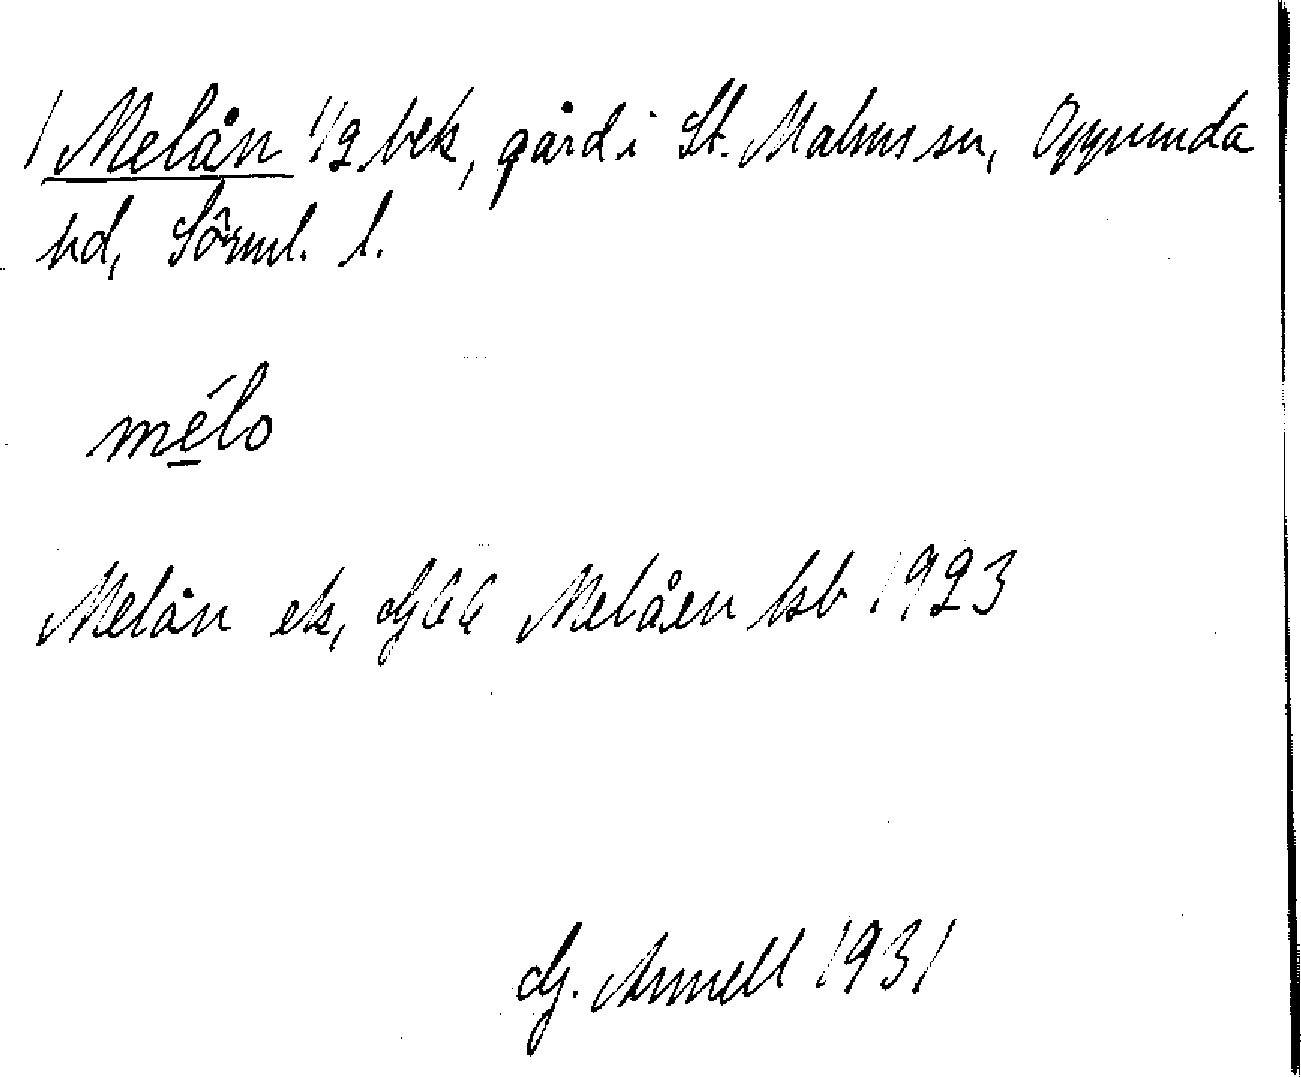 1 Melån 1/2 bek, gård i St. Malms sn, Oppunda
hd, Sörml. l.
mélo
Melån ek, GEK Melåen ksb 1923
G. Annell 1931